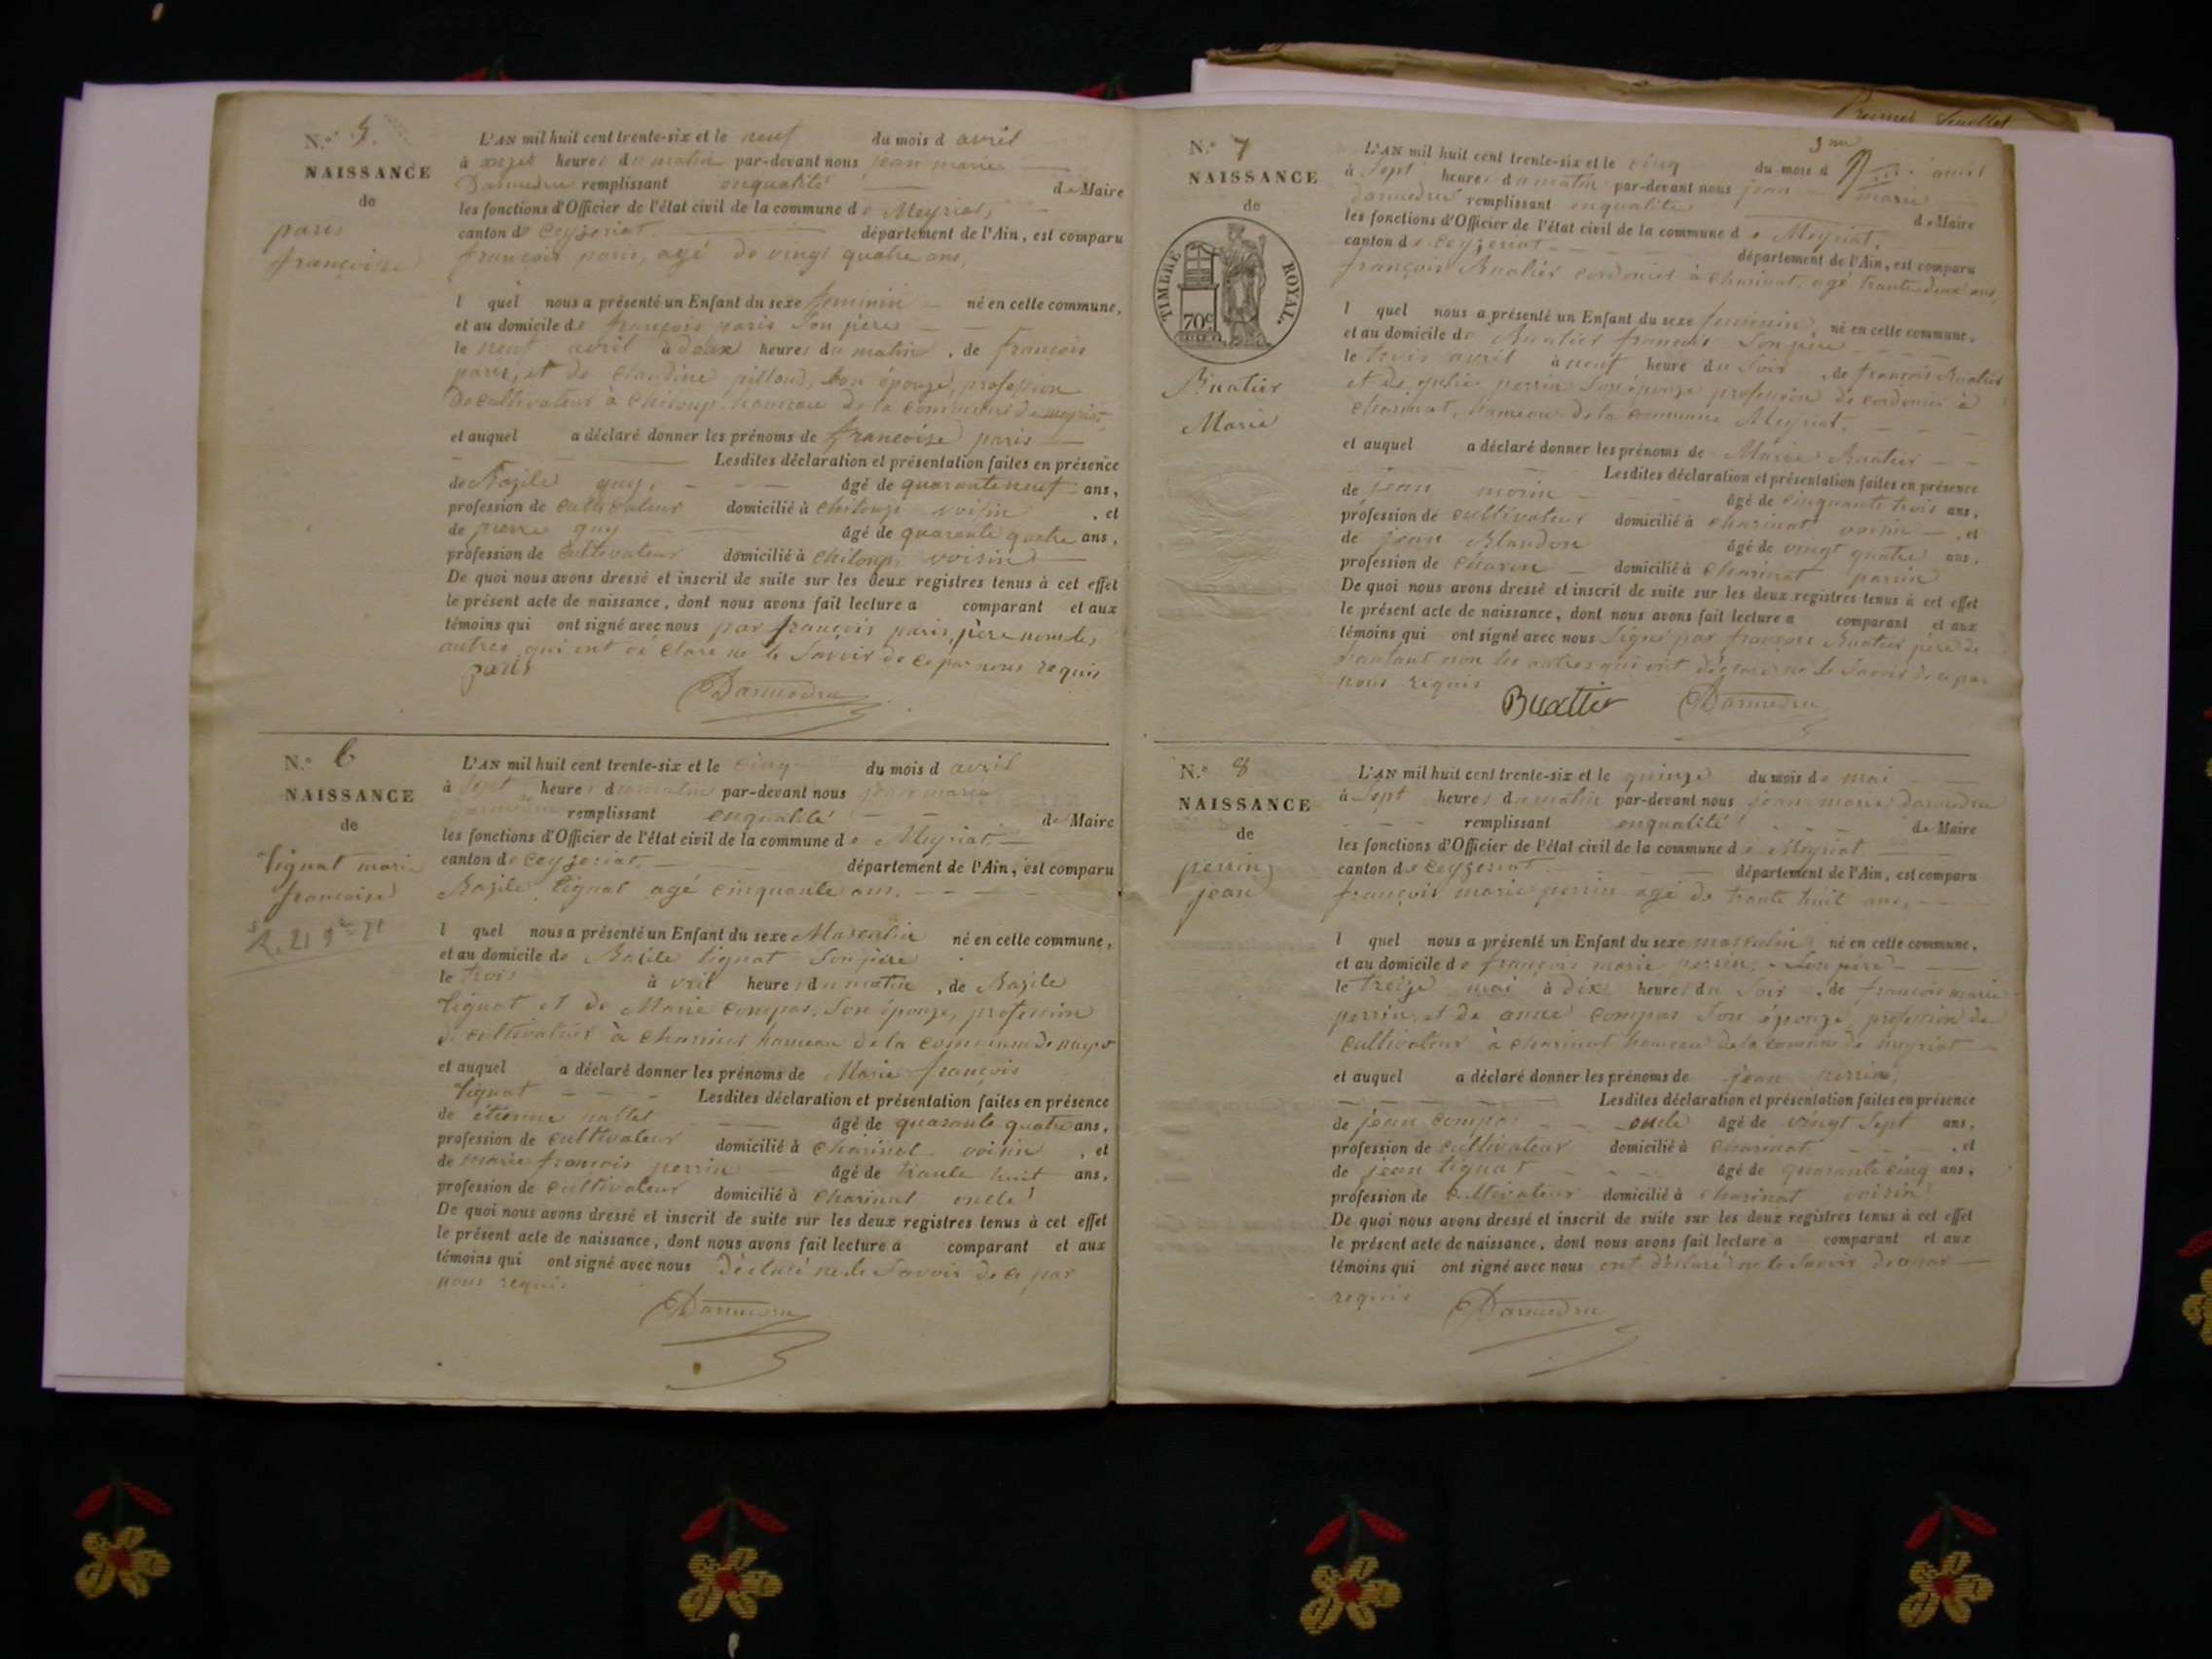 N.° 5.
NAISSANCE
de
paris
françoise
L'AN mil huit cent trente-six et le neuf du mois d avril
à onze heures du matin par-devant nous jean marie
Darmedru remplissant enqualité de Maire
les fonctions d'Officier de l'état civil de la commune de Meyriat,
canton de Ceyzeriat département de l'Ain, est comparu
françois paris, agé de vingt quatre ans,
l quel nous a présenté un Enfant du sexe feminin né en cette commune,
et au domicile de françois paris Son père
le neuf avril à deux heures du matin, de françois
paris, et de Claudine pilloud, Son épouze, profession
De cultivateur à Chiloup hameau de la commune de meyriat
et auquel a déclaré donner les prénoms de francoise paris
Lesdites déclaration et présentation faites en présence
de Bazile guy, âgé de quarante neuf ans,
profession de cultivateur domicilié à Chiloup voisin, et
de pierre guy âgé de quarante quatre ans,
profession de Cultivateur domicilié à Chiloup, voisin
De quoi nous avons dressé et inscrit de suite sur les deux registres tenus à cet effet
le présent acte de naissance, dont nous avons fait lecture a comparant et aux
témoins qui ont signé avec nous par françois paris, père non les
autres qui ont dé claré ne le Savoir de ce par nous requis
paris
Darmedru
N.° 6
NAISSANCE
de
Tignat marie
francoise
L'AN mil huit cent trente-six et le cinq du mois d avril
à Sept heures du matin par-devant nous jean marie
remplissant enqualité de Maire
les fonctions d'Officier de l'état civil de la commune de Meyriat
canton de Ceyzeriat, département de l'Ain, est comparu
Bazile tignat agé cinquante ans.
l quel nous a présenté un Enfant du sexe Masculin né en cette commune,
et au domicile de Bazile tignat Son père
le trois à vril heures du matin, de Bazile
tignat et de Marie Compas, Son épouze, profession
de cultivateur à Charinat hameau de la commune de
et auquel a déclaré donner les prénoms de Marie françois
tignat Lesdites déclaration et présentation faites en présence
de étienne âgé de quarante quatre ans,
profession de cultivateur domicilié à Charinat voisin, et
de marie françois perrin âgé de trante huit ans,
profession de cultivateur domicilié à Charinat oncle
De quoi nous avons dressé et inscrit de suite sur les deux registres tenus à cet effet
le présent acte de naissance, dont nous avons fait lecture a comparant et aux
témoins qui ont signé avec nous Déclaré ne le Savoir de ce par
nous requis
Darmedru
N.° 7
NAISSANCE
de
TIMBRE ROYAL.
70c
Buatier
Marie
L'AN mil huit cent trente-six et le cinq du mois d avril
à Sept heures du matin par-devant nous jean marie
darmedru remplissant enqualité de Maire
les fonctions d'Officier de l'état civil de la commune de Meyriat,
canton de Ceyzeriat département de l'Ain, est comparu
françois Buatier cordonier à Charinat, agé trante deux ans,
l quel nous a présenté un Enfant du sexe feminin, né en cette commune,
et au domicile de Buatier françois Son père
le trois avril à neuf heure du Soir, de françois Buatier
et de perrin Son épouze profession de cordonier à
Charinat, hameau de la commune Meyriat.
et auquel a déclaré donner les prénoms de Marie Buatier
Lesdites déclaration et présentation faites en présence
de jean morin âgé de cinquante trois ans,
profession de cultivateur domicilié à Charinat voisin, et
de jean Blandon âgé de vingt quatre ans,
profession de domicilié à Charinat
De quoi nous avons dressé et inscrit de suite sur les deux registres tenus à cet effet
le présent acte de naissance, dont nous avons fait lecture a comparant et aux
témoins qui ont signé avec nous Signé par françois Buatier père de
non les autres qui ont déclaré ne le Savoir de ce par
nous requis
Buatier Darmedru
N.° 8
NAISSANCE
de
perrin,
jean
L'AN mil huit cent trente-six et le quinze du mois de mai
à Sept heures du matin par-devant nous jean marie darmedru
remplissant enqualité de Maire
les fonctions d'Officier de l'état civil de la commune de Meyriat
canton de Ceyzeriat département de l'Ain, est comparu
françois marie perrin agé de trante huit ans,
l quel nous a présenté un Enfant du sexe masculin, né en cette commune,
et au domicile de françois marie perrin, Son père
le treize mai à dix heures du Soir, de françois marie
perrin, et de anne Compas Son épouze, profession de
cultivateur à Charinat hameau de la commune de meyriat
et auquel a déclaré donner les prénoms de jean perrin,
Lesdites déclaration et présentation faites en présence
de jean Compas oncle âgé de vingt Sept ans,
profession de cultivateur domicilié à Charinat, et
de jean tignat âgé de quarante cinq ans,
profession de cultivateur domicilié à Charinat voisin
De quoi nous avons dressé et inscrit de suite sur les deux registres tenus à cet effet
le présent acte de naissance, dont nous avons fait lecture a comparant et aux
témoins qui ont signé avec nous ont déclaré ne le Savoir de ce par
requis
Darmedru